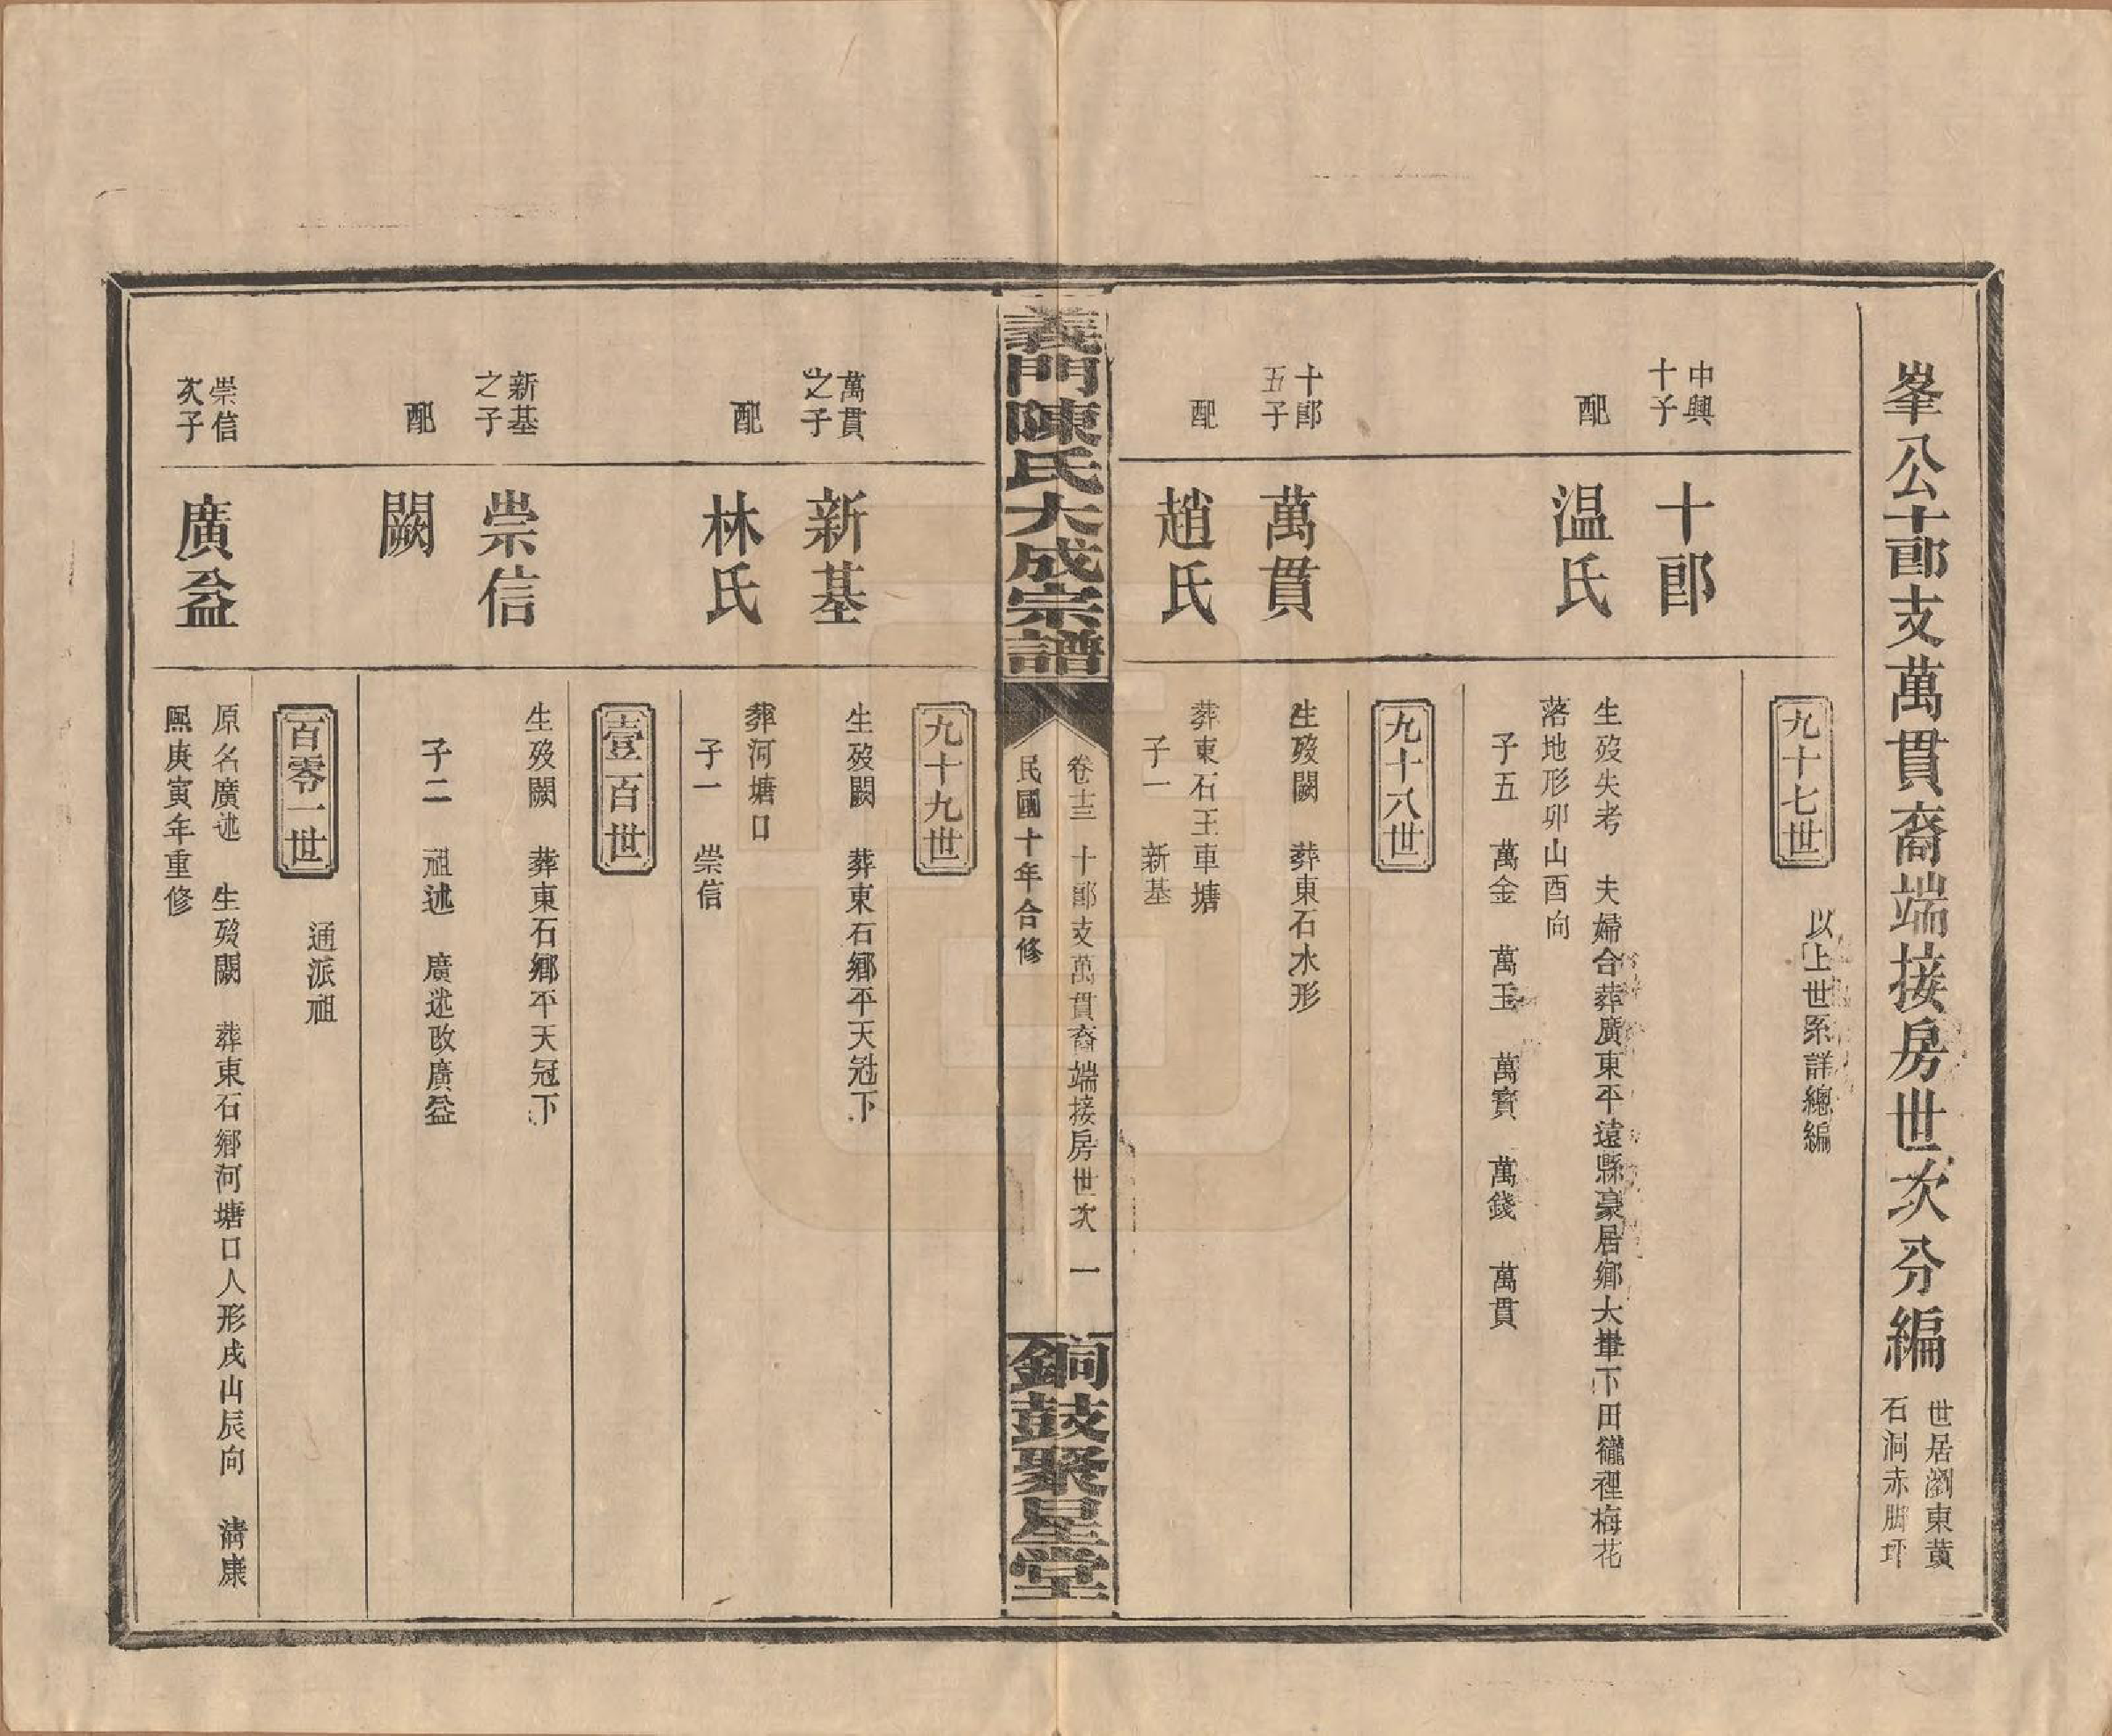 峯公十郎支萬貫裔端接房世次分編
世居瀏東黃
石洞赤脚坪
九十七世
以上世系詳總編
中興
十子
十郎
生歿失考　夫婦合葬廣東平遠縣豪居鄉大畬下田裡梅花
配
温氏
落地形卯山酉向
子五　萬金　萬玉　萬寳　萬錢　萬貫
九十八世
十郎
五子
萬貫
生歿闕　葬東石水形
配
趙氏
葬東石王車塘
子一　新基
義門陳氏大成宗譜
卷十三　十郎支萬貫裔端接房世次　一
民國十年合修
銅鼓聚星堂
九十九世
萬貫
之子
新基
生歿闕　葬東石鄉平天冠下
配
林氏
葬河塘口
子一　崇信
壹百世
新基
之子
崇信
生歿闕　葬東石鄉平天冠下
配
闕
子二　祖述　廣述改廣益
百零一世
通派祖
崇信
次子
廣益
原名廣述　生歿闕　葬東石鄉河塘口人形戌山辰向　清康
熙庚寅年重修